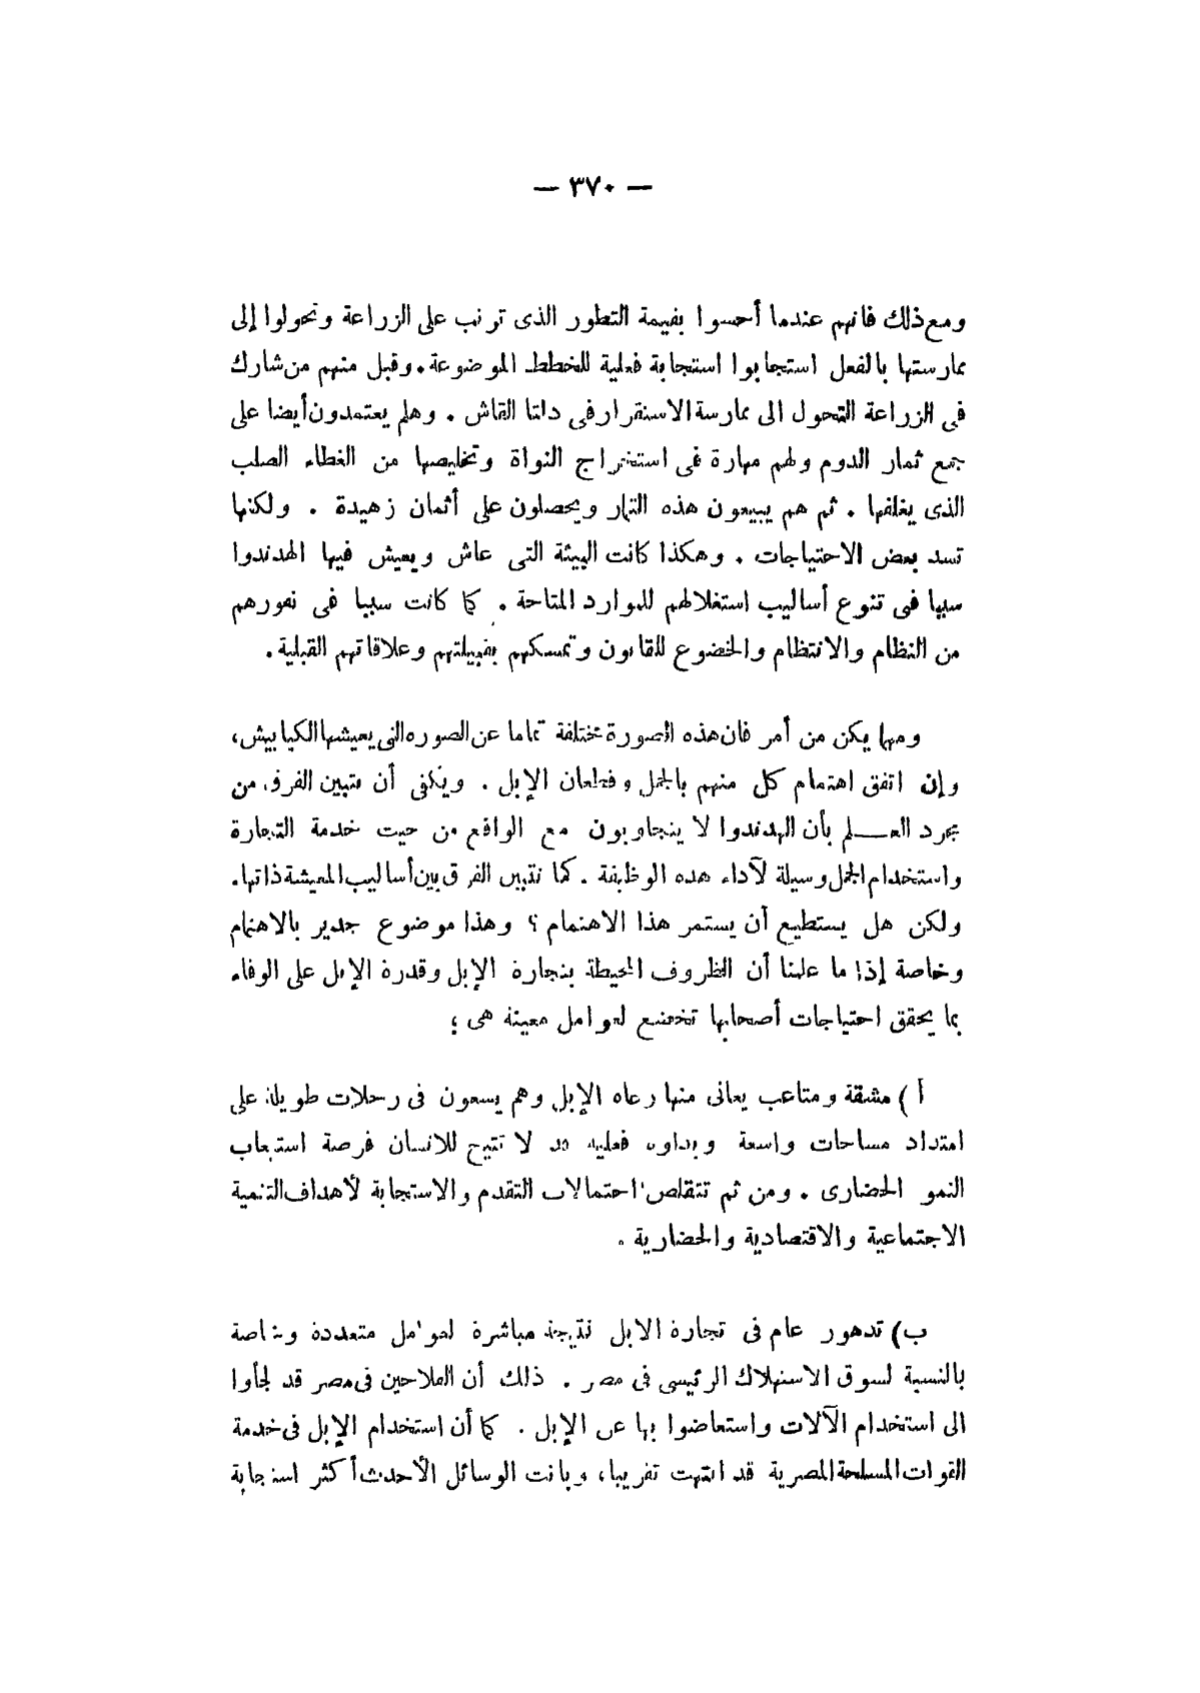 — ٣٧٠ —
ومع ذلك فانهم عندما أحسوا بقيمة التطور الذى ترتب على الزراعة وتحولوا إلى
ممارستها بالفعل استجابوا استجابة فعلية للخطط الموضوعة . وقبل منهم من شارك
فى الزراعة التحول الى ممارسة الاستقرار فى دلتا القاش . وهم يعتمدون أيضا على
جمع ثمار الدوم ولهم مهارة فى استخراج النواة وتخليصها من الغطاء الصلب
الذى يغلفها . ثم هم يبيعون هذه الثمار ويحصلون على أثمان زهيدة . ولكنها
تسد بعض الاحتياجات . وهكذا كانت البيئة التى عاش ويعيش فيها الهدندوا
سببا فى تنوع أساليب استغلالهم للموارد المتاحة . كما كانت سببا فى نفورهم
من النظام والانتظام والخضوع للقانون وتمسكهم بقبيلتهم وعلاقاتهم القبلية .
ومهما يكن من أمر فان هذه الصورة مختلفة تماما عن الصوره التى يعيشها الكبابيش ،
وإن اتفق اهتمام كل منهم بالجمل وقطعان الإبل . ويكفى أن نتبين الفرق من
مجرد العـــلم بأن الهدندوا لا يتجاوبون مع الواقع من حيث خدمة التجارة
واستخدام الجمل وسيلة لآداء هذه الوظيفة . كما نتبين الفرق بين أساليب المعيشة ذاتها .
ولكن هل يستطيع أن يستمر هذا الاهتمام ؟ وهذا موضوع جدير بالاهتمام
وخاصة إذا ما علمنا أن الظروف المحيطة بتجارة الإبل وقدرة الإبل على الوفاء
بما يحقق احتياجات أصحابها تخضع لعوامل معينة هى ؛
أ ) مشقة ومتاعب يعانى منها رعاه الإبل وهم يسعون فى رحلات طويلة على
امتداد مساحات واسعة وبداوه فعليه قد لا تتيح للانسان فرصة استيعاب
النمو الحضارى . ومن ثم تتقلص احتمالات التقدم والاستجابة لأهداف التنمية
الاجتماعية والاقتصادية والحضارية .
ب) تدهور عام فى تجارة الابل نتيجة مباشرة لعوامل متعددة وخاصة
بالنسبة لسوق الاستهلاك الرئيسى فى مصر . ذلك أن الفلاحين فى مصر قد لجأوا
الى استخدام الآلات واستعاضوا بها عن الإبل . كما أن استخدام الإبل فى خدمة
القوات المسلحة المصرية قد انتهت تقريبا ، وباتت الوسائل الأحدث أكثر استجابة